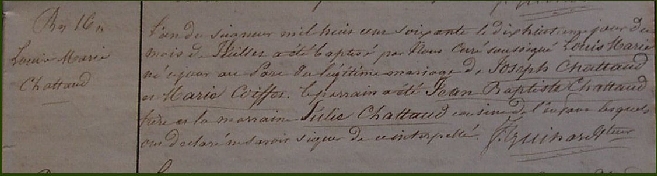 Bs 16
Louis Marie
Chattaud
L'an du seigneur mil huit cent soixante le dix huitième jour du
mois de Juillet a été baptisé par Nous Curé soussigné Louis Marie
né ce jour au du légitime mariage de Joseph Chattaud
et Marie Coiffer. Le parrain a été Jean Baptiste Chattaud
frère et la marraine Julie Chattaud cousine de l'enfant lesquels
ont déclaré ne savoir signer de ce interpellé. J. Guinard